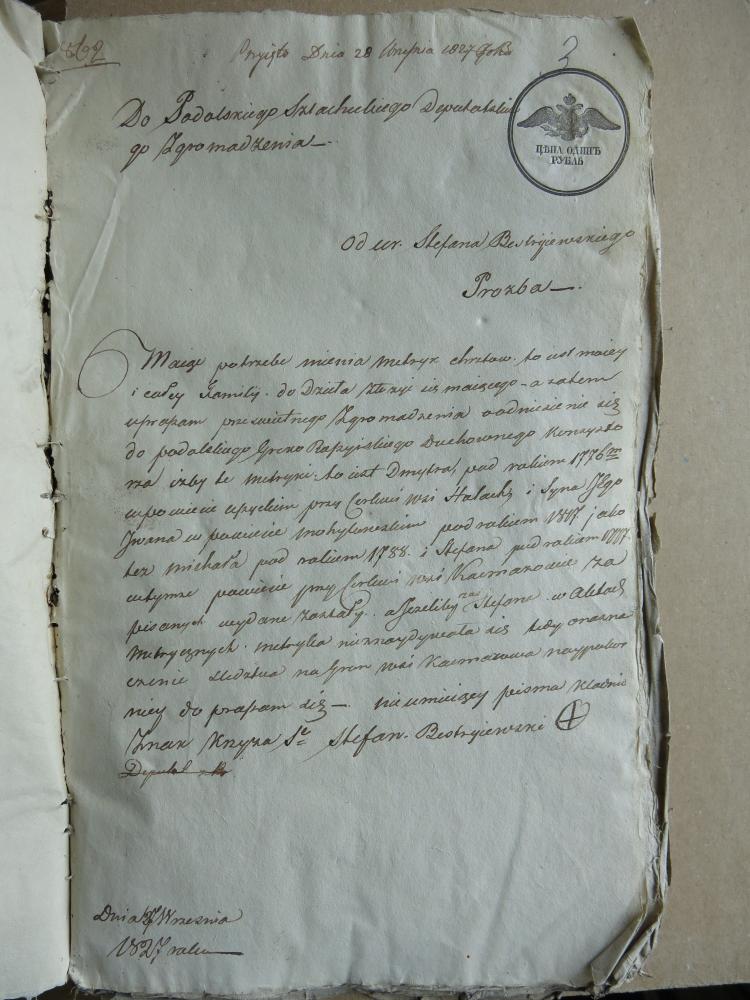 Przyięto Dnia 28 1827 Roku
3
Do Podolskiego Szlacheckiego Deputatskie
go Zgromadzenia
ЦѢНА ОДИНЪ
РУБЛЬ
Od ur. Stefana Bestryiewskiego
Prozba
Maiąc potrzebe mienia metryk chrztow. to iest moiey
i całey Familij. do Dzieła złożyć się maiącego - a zatem
upraszam prześwietnego Zgromadzenia o odniesienie się
do podolskiego Greko Rossyiskiego Duchownego Konsysto
rza iżby te metryki to iest Dmytra pod rokiem 1776m
w powiecie przy Cerkwi wsi i Syna Jego
Iwana w powiecie mohylowskim pod rokiem 1817 jako
też michała pod rokiem 1788 i Stefana pod rokiem
w tymże powiecie przy Cerkwi wsi Kaczmazowie za
pisanych wydane zostały. a Jeżeliby za Stefana w Aktach
Metrycznych metryka nieznaydywała się tedy o nazna
czenie Sledztwa na Grun wsi Kaczmazowa naypokor
niey do praszam się - nieumieiący pisma kładnie
Znak Krzyża Ste Stefan Bestryiewski
Deputat
Dnia Wrzesnia
1827 roku